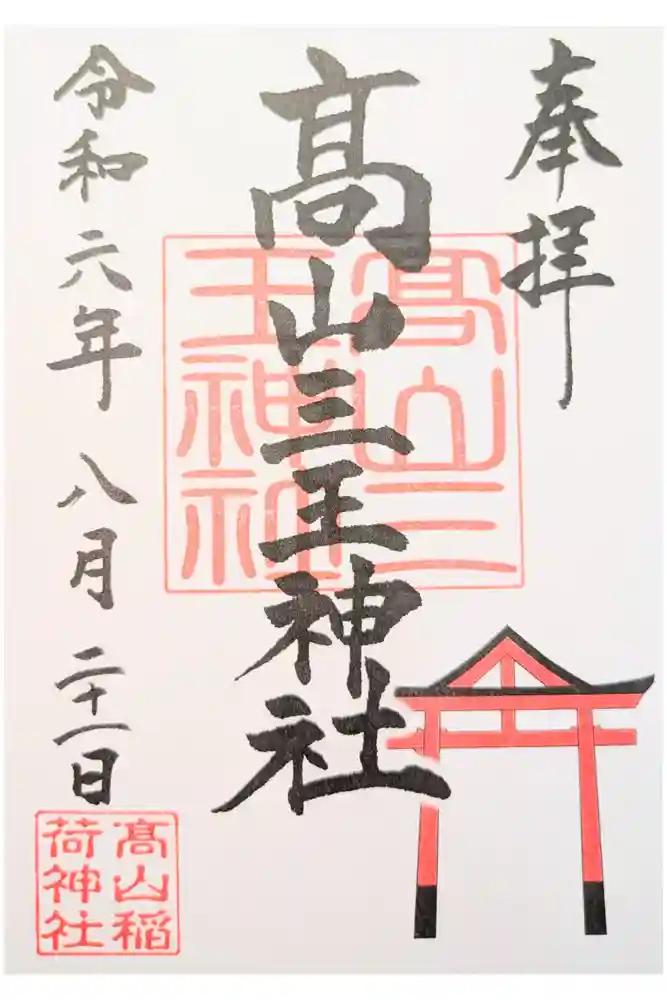 奉拝
髙山三王神社
髙山三
王神社
令和六年 八月 二十一日
髙山稲
荷神社